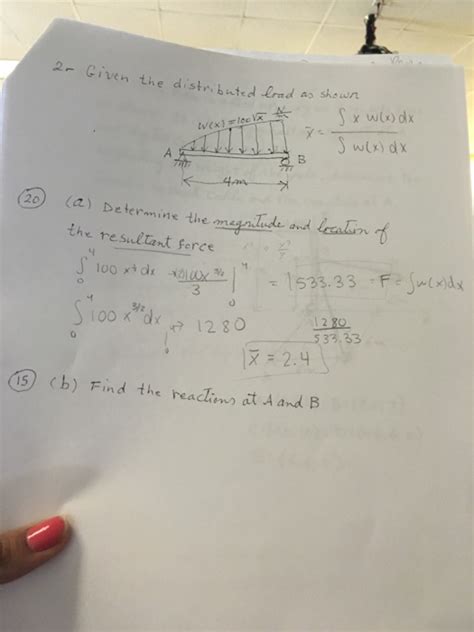 2- Given the distributed load as shown
w(x) = 100√x N/m
x̄ = ∫ x w(x) dx / ∫ w(x) dx
A B
4m
(20) (a) Determine the magnitude and location of
the resultant force
∫₀⁴ 100 x dx 3/2 / 3 |₀⁴ = 533.33 = F = ∫w(x)dx
∫₀⁴ 100 x^3/2 dx → 1280 1280 / 533.33
x̄ = 2.4
(15) (b) Find the reactions at A and B